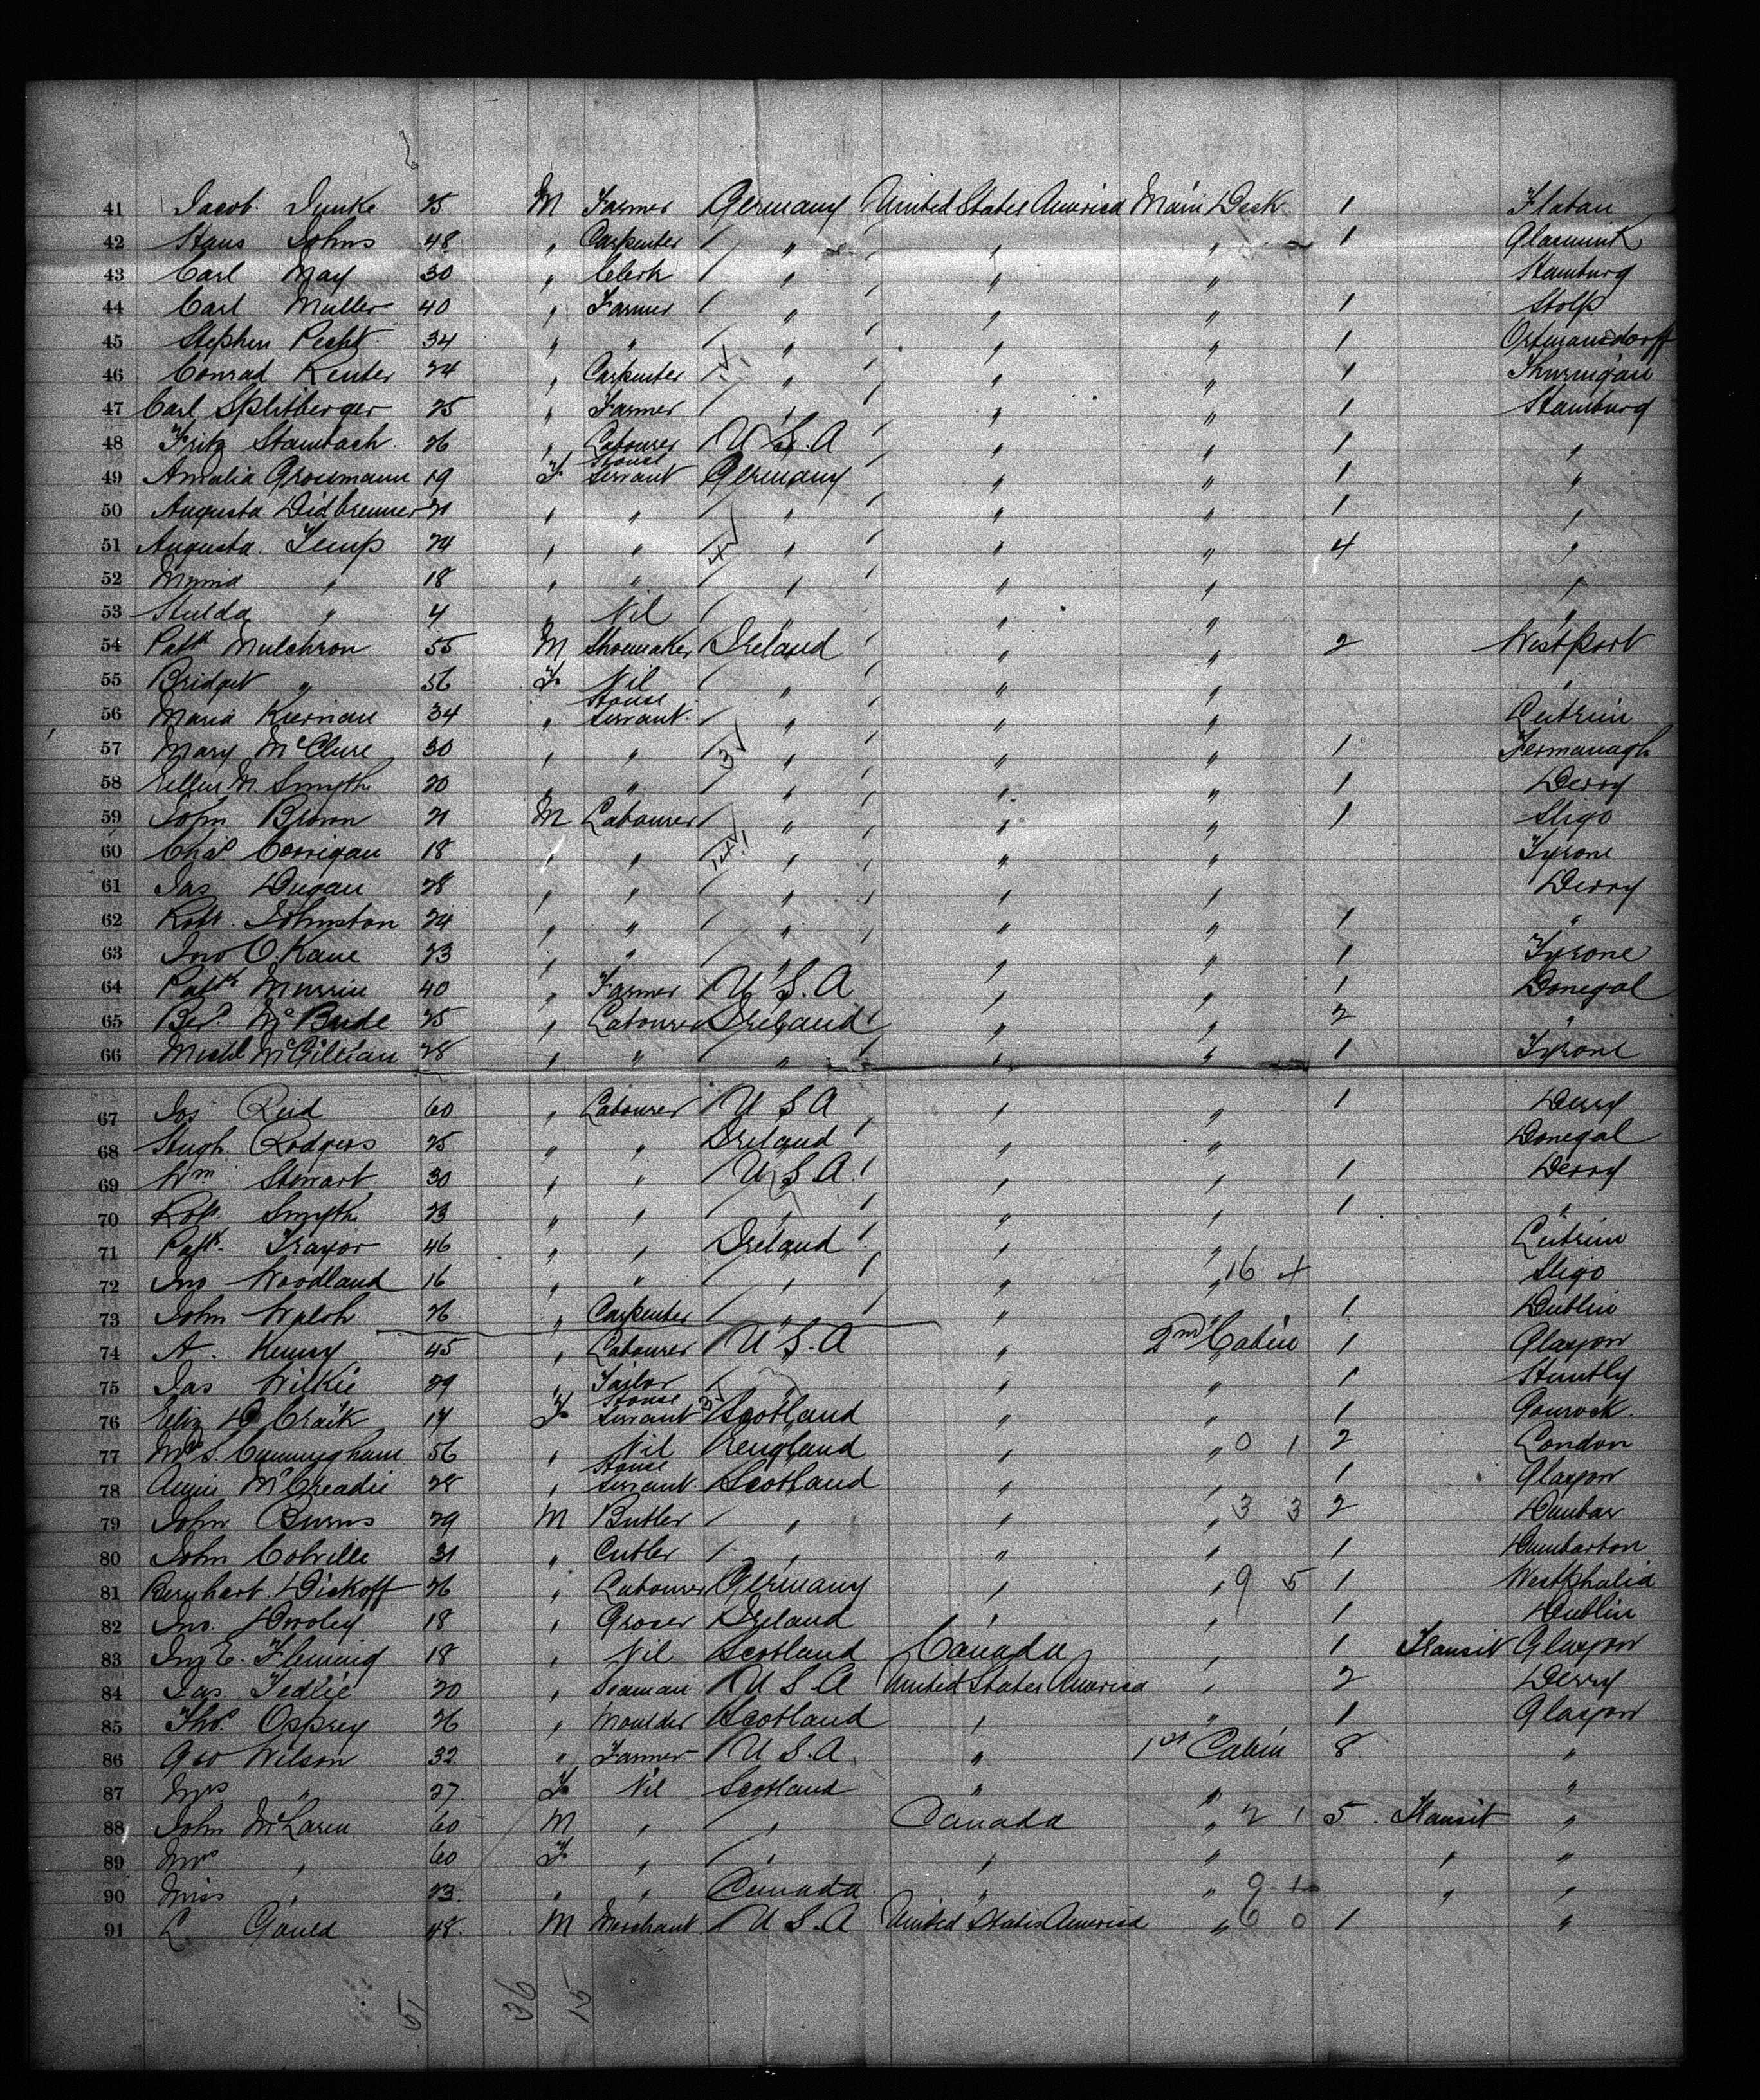 41 Jacob Junke 25 M Farmer Germany United States America Main Deck 1 Flatau
42 Hans Johns 48 " Carpenter / " " " 1
43 Carl May 30 " Clerk / " " " Hamburg
44 Carl Muller 40 " Farmer / " " " 1 Stolp
45 Stephen Pecht 34 " " " " " 1
46 Conrad Kenter 24 " Carpenter " " " 1
47 Carl Splitberger 25 " Farmer / " " " 1 Hamburg
48 Fritz Stambach 26 " Labourer U.S.A " " 1 "
49 Amalia Grossmann 19 F House Servant Germany " " 1 "
50 Augusta 21 " " / " " " 1 "
51 Augusta Temp 24 " " 4 " " " 4 "
52 Minna " 18 " " / " " " "
53 Hulda " 4 " Nil / " " " "
54 Patk Mulchron 55 M Shoemaker Ireland " " 2 Westport
55 Bridget " 56 F Nil / " " " "
56 Maria Kiernan 34 " House Servant / " " " Leitrim
57 Mary McClure 30 " " 3 " " " 1 Fermanagh
58 Ellen M. Smyth 20 " " / " " " 1 Derry
59 John Brown 21 M Labourer / " " " 1 Sligo
60 Chas Corrigan 18 " " " " " Tyrone
61 Jas Dugan 28 " " / " " " Derry
62 Robt. Johnston 24 " " / " " " 1 "
63 Jno O.Kane 23 " " / " " " 1 Tyrone
64 Patk Murrin 40 " Farmer U.S.A " " 1 Donegal
65 Bed. McBride 25 " Labourer Ireland " " 2 "
66 Michl McGillian 28 " " / " " " 1 Tyrone
67 Jos Reid 60 " Labourer U S A " " 1 Derry
68 Hugh Rodgers 25 " " Ireland " " Donegal
69 Wm Stewart 30 " " U.S.A. " " 1 Derry
70 Robt. Smyth 23 " " / " " " 1 "
71 Patk. Traynor 46 " " Ireland " " Leitrim
72 Jno Woodland 16 " " / " " " 16 4 Sligo
73 John Walsh 26 " Carpenter / " " 1 Dublin
74 A. Kenny 45 " Labourer U.S.A " 2nd Cabin 1 Glasgow
75 Jas Wilkie 29 " Tailor / " " 1 Huntly
76 Eliz Craik 17 F House Servant Scotland " " 1 Gourock
77 Mrs S. Cunningham 56 " Nil England " " 0 1 2 London
78 Annie McCreadie 28 " House Servant Scotland " " 1 Glasgow
79 John Burns 29 M Butler / " " " 3 3 2 Dunbar
80 John Colville 31 " Cutler / " " " 1 Dumbarton
81 Bernhart Dickoff 26 " Labourer Germany " " 9 5 1 Westphalia
82 Jno. Dooley 18 " Grocer Ireland " " 1 Dublin
83 Jno E. Fleming 18 " Nil Scotland Canada " 1 Transit Glasgow
84 Jas. Tedlie 20 " Seaman U S A United States America " 2 Derry
85 Thos. Osprey 26 " Moulder Scotland " " 1 Glasgow
86 Geo Wilson 32 " Farmer U S.A. " 1st Cabin 8 "
87 Mrs " 27 F Nil Scotland " " "
88 John McLaren 60 M " " Canada " 2 1 5 Transit "
89 Mrs " 60 F " / " " " " "
90 Miss " 23 " " Canada " " 9 1 " "
91 L Gould 48 M Merchant U.S.A United States America " 6 0 1 "
51 36 15